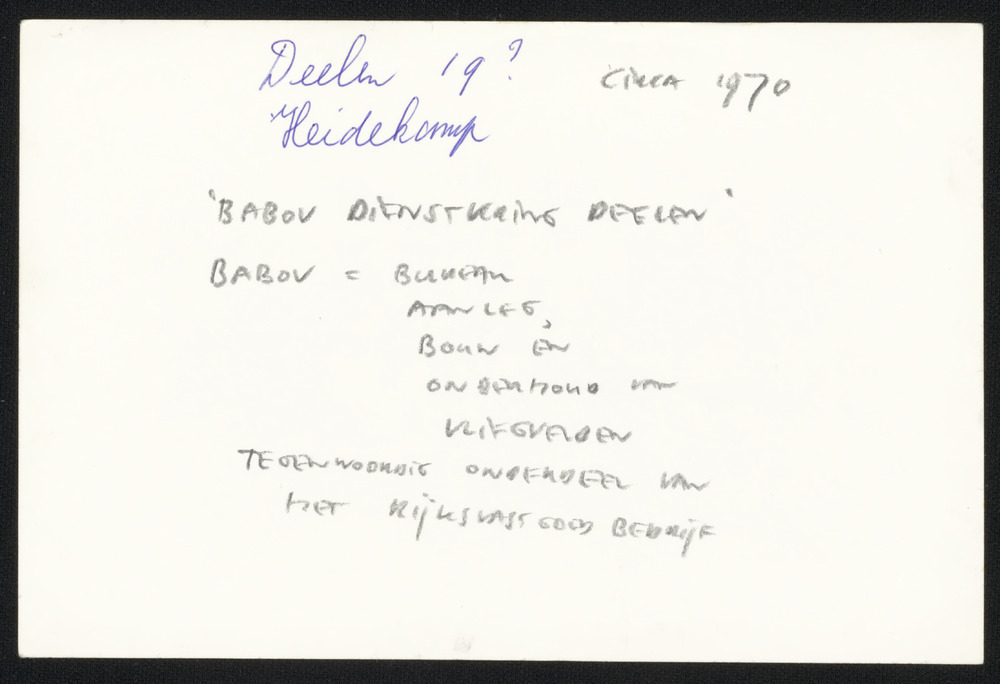 Deelen 19? CIRCA 1970
Heidekamp
'BABOV DIENSTKRING DEELEN'
BABOV = BUREAU
AANLEG,
BOUW EN
ONDERHOUD VAN
VLIEGVELDEN
TEGENWOORDIG ONDERDEEL VAN
HET RIJKSVASTGOED BEDRIJF